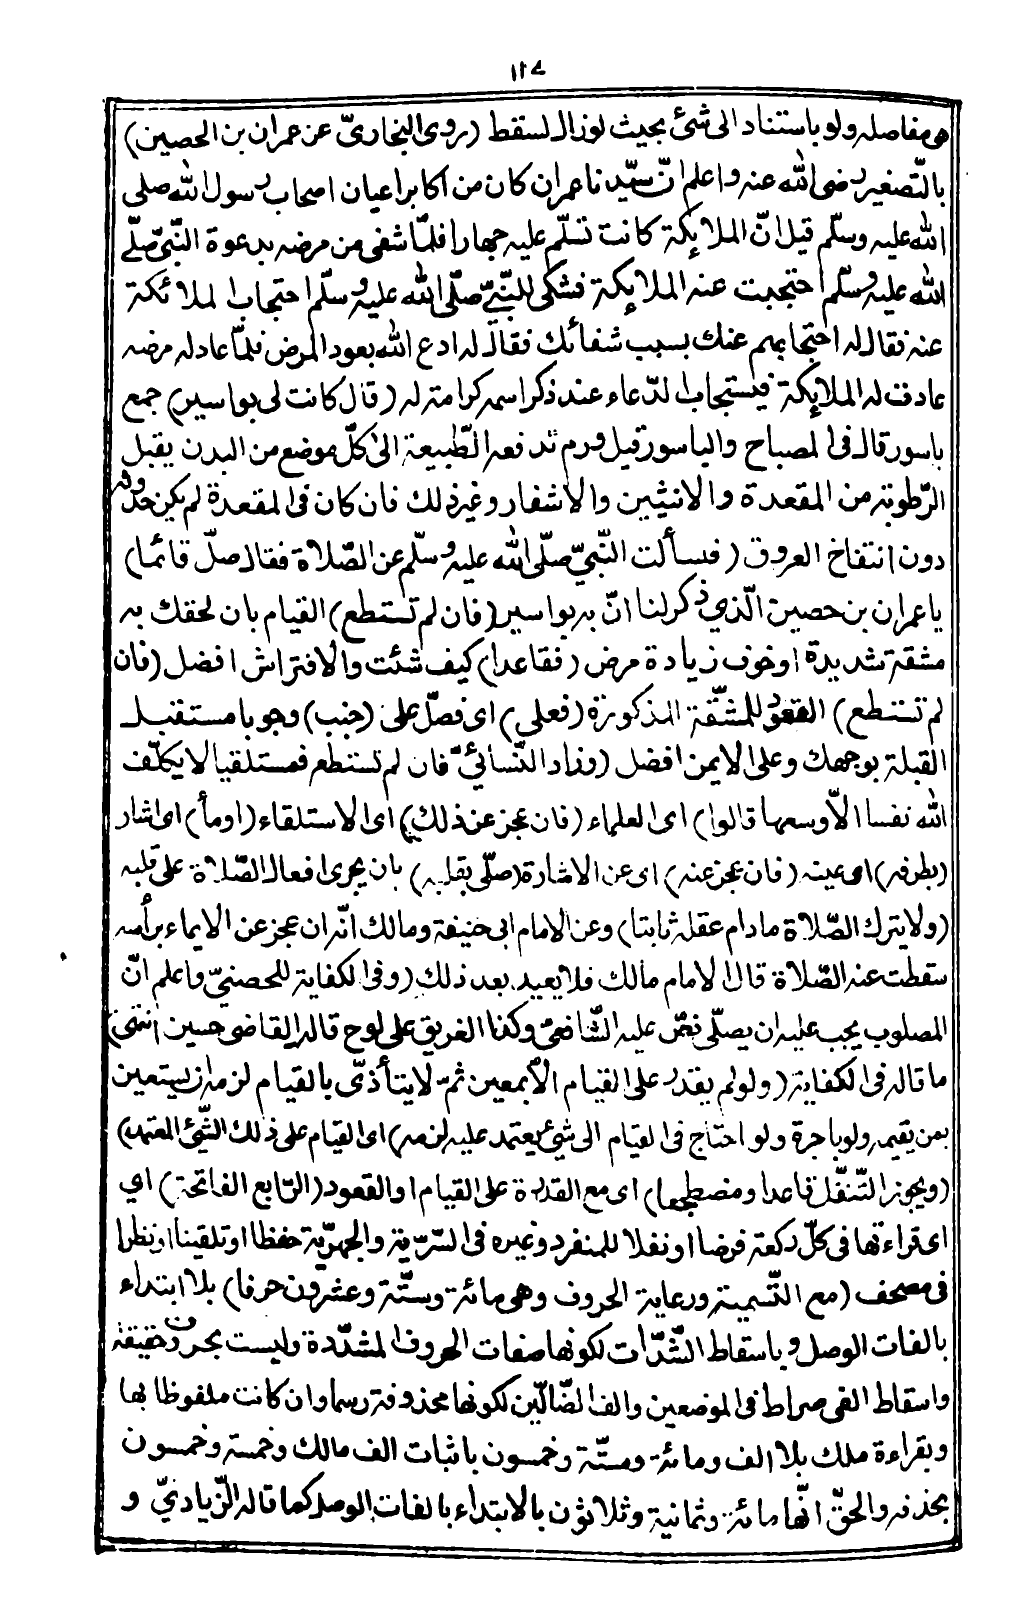 ١١٤
هى مفاصله ولو باستناد الى شئ بحيث لو زال لسقط (روى البخارىّ عن عمران بن الحصين)
بالتّصغير رضى الله عنه واعلم انّ سيّدنا عمران كان من أكابر اعيان اصحاب رسول الله صلى
الله عليه وسلّم قيل انّ الملايكة كانت تسلّم عليه جهارا فلمّا شفى من مرضه بدعوة النّبىّ صلّى
الله عليه وسلّم احتجبت عنه الملايكة فشكى للنّبىّ صلّى الله عليه وسلّم احتجاب الملائكة
عنه فقال له احتجابهم عنك بسبب شفائك فقال له ادع الله بعود المرض فلمّا عاد له مرضه
عادت له الملايكة فيستجاب الدّعاء عند ذكر اسمه كرامة له (قال كانت لى بواسير) جمع
باسور قال فى المصباح والباسور قيل ورم تدفعه الطّبيعة الى كلّ موضع من البدن يقبل
الرّطوبة من المقعدة والانثيين والاشفار وغير ذلك فان كان فى المقعدة لم يكن حدوثه
دون انتفاخ العروق (فسألت النّبىّ صلّى الله عليه وسلّم عن الصّلاة فقال صلّ قائما)
يا عمران بن حصين الّذي ذكر لنا انّ به بواسير (فان لم تستطع) القيام بان لحقك به
مشقة شديدة او خوف زيادة مرض (فقاعدا) كيف شئت والافتراش افضل (فان
لم تستطع) القعود للمشّقة المذكورة (فعلي) اى فصلّ على (جنب) وجوبا مستقبل
القبلة بوجهك وعلى الايمن افضل (وزاد النّسائىّ فان لم تستطع فمستلقيا لا يكلّف
الله نفسا الّا وسعها قالوا) اى العلماء (فان عجز عن ذلك) اى الاستلقاء (اومأ) اى اشار
(بطرفه) اى عينه (فان عجز عنه) اى عن الاشارة (صلّى بقلبه) بان يجرى افعال الصّلاة على قلبه
(ولا يترك الصّلاة ما دام عقله ثابتا) وعن الامام ابى حنيفة ومالك انّه ان عجز عن الايماء برأسه
سقطت عنه الصّلاة قال الامام مالك فلا يعيد بعد ذلك (وفى الكفاية للحصنىّ واعلم انّ
المصلوب يجب عليه ان يصلّى نصّ عليه الشّافعىّ وكذا الغريق على لوح قاله القاضى حسين انتهى)
ما قاله فى الكفاية (ولو لم يقدر على القيام الّا بمعين ثمّ لا يتأذّى بالقيام لزمه ان يستعين
بمن يقيمه ولو باجرة ولو احتاج فى القيام الى شئ يعتمد عليه لزمه) اى القيام على ذلك الشّئ المعتمد)
(ويجوز التّنفّل قاعدا ومضطجعا) اى مع القدرة على القيام او القعود (الرّابع الفاتحة) اي
اى قراءتها فى كلّ ركعة فرضا او نفلا للمنفرد وغيره فى السّرّيّة والجهريّة حفظا او تلقينا او نظرا
فى مصحف (مع التّسمية ورعاية الحروف وهى مائة وستّة وعشرون حرفا) بلا ابتداء
بالفات الوصل وباسقاط الشّدّات لكونها صفات الحروف المشدّدة وليست بحروف حقيقة
واسقاط الفى صراط فى الموضعين والف الضّالّين لكونها محذوفة رسما وان كانت ملفوظا بها
وبقراءة ملك بلا الف ومائة وستّة وخمسون باثبات الف مالك وخمسة وخمسون
بحذفه والحقّ انّها مائة وثمانية وثلاثون بالابتداء بالفات الوصل كما قاله الزّيادىّ و